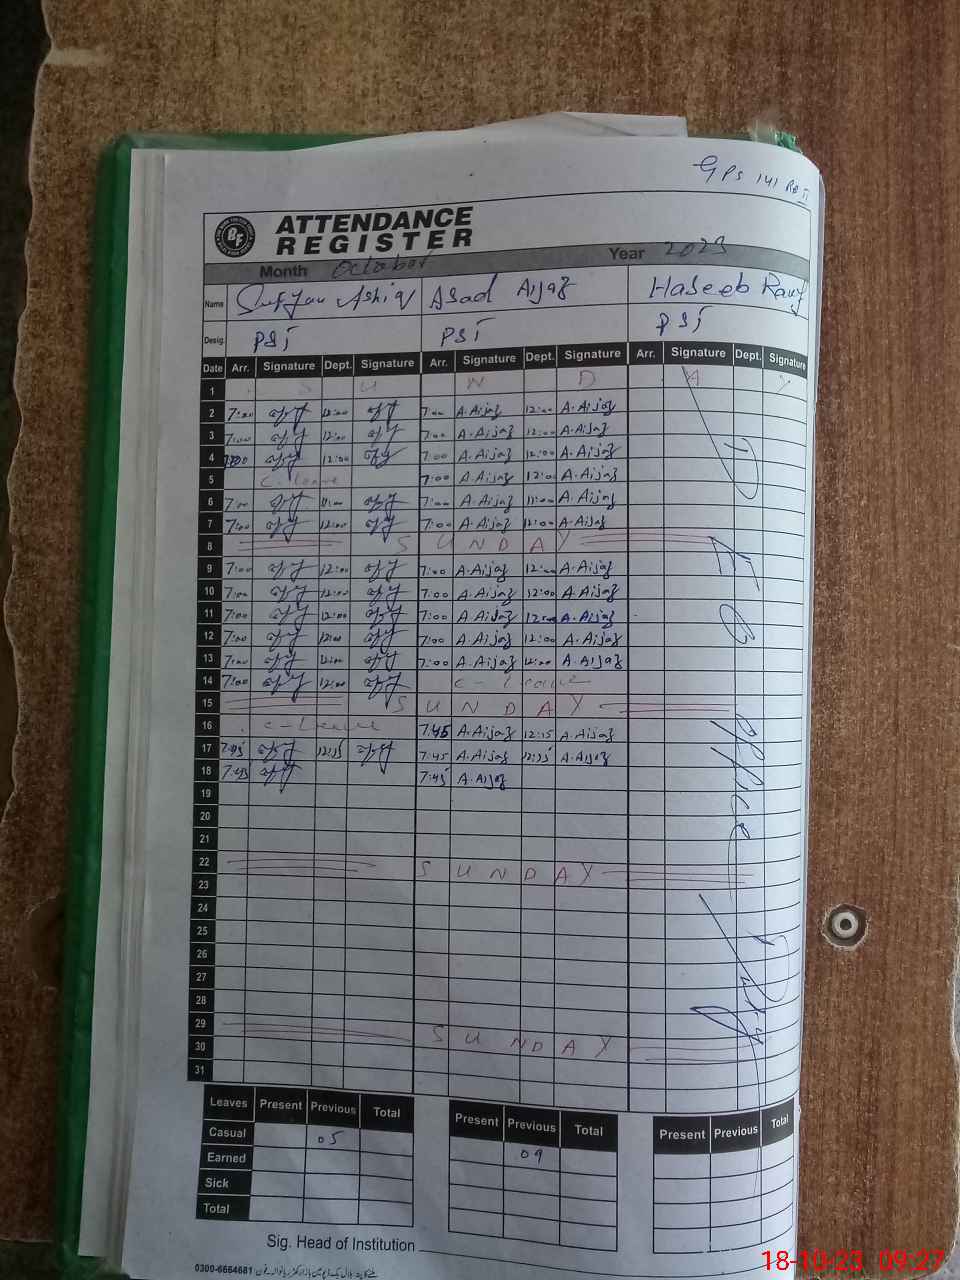 GPS 141 RB II
ATTENDANCE
REGISTER
Month October Year 2023
Name Sufyan Ashiq Asad Aijaz Haseeb Rauf
Desig. PST PST PST
Date Arr. Signature Dept. Signature Arr. Signature Dept. Signature Arr. Signature Dept. Signature
1 S U N D A Y
2 7:00 12:00 7:00 A.Aijaz 12:00 A.Aijaz
3 7:00 12:00 7:00 A.Aijaz 12:00 A.Aijaz
4 7:00 12:00 7:00 A.Aijaz 12:00 A.Aijaz
5 C-leave 7:00 A.Aijaz 12:00 A.Aijaz
6 7:00 7:00 A.Aijaz A.Aijaz
7 7:00 12:00 7:00 A.Aijaz 12:00 A.Aijaz
8 S U N D A Y
9 7:00 12:00 7:00 A.Aijaz 12:00 A.Aijaz
10 7:00 12:00 7:00 A.Aijaz 12:00 A.Aijaz
11 7:00 12:00 7:00 A.Aijaz 12:00 A.Aijaz
12 7:00 12:00 7:00 A.Aijaz 12:00 A.Aijaz
13 7:00 7:00 A.Aijaz A.Aijaz
14 7:00 12:00 C-leave
15 S U N D A Y
16 C-Leave 7:45 A.Aijaz 12:15 A.Aijaz
17 7:45 12:15 7:45 A.Aijaz 12:15 A.Aijaz
18 7:45 7:45 A.Aijaz
19
20
21
22 S U N D A Y
23
24
25
26
27
28
29 S U N D A Y
30
31
D E O office
Leaves Present Previous Total Present Previous Total Present Previous Total
Casual 05 09
Earned
Sick
Total
Sig. Head of Institution
0300-6664681
18-10-23 09:27